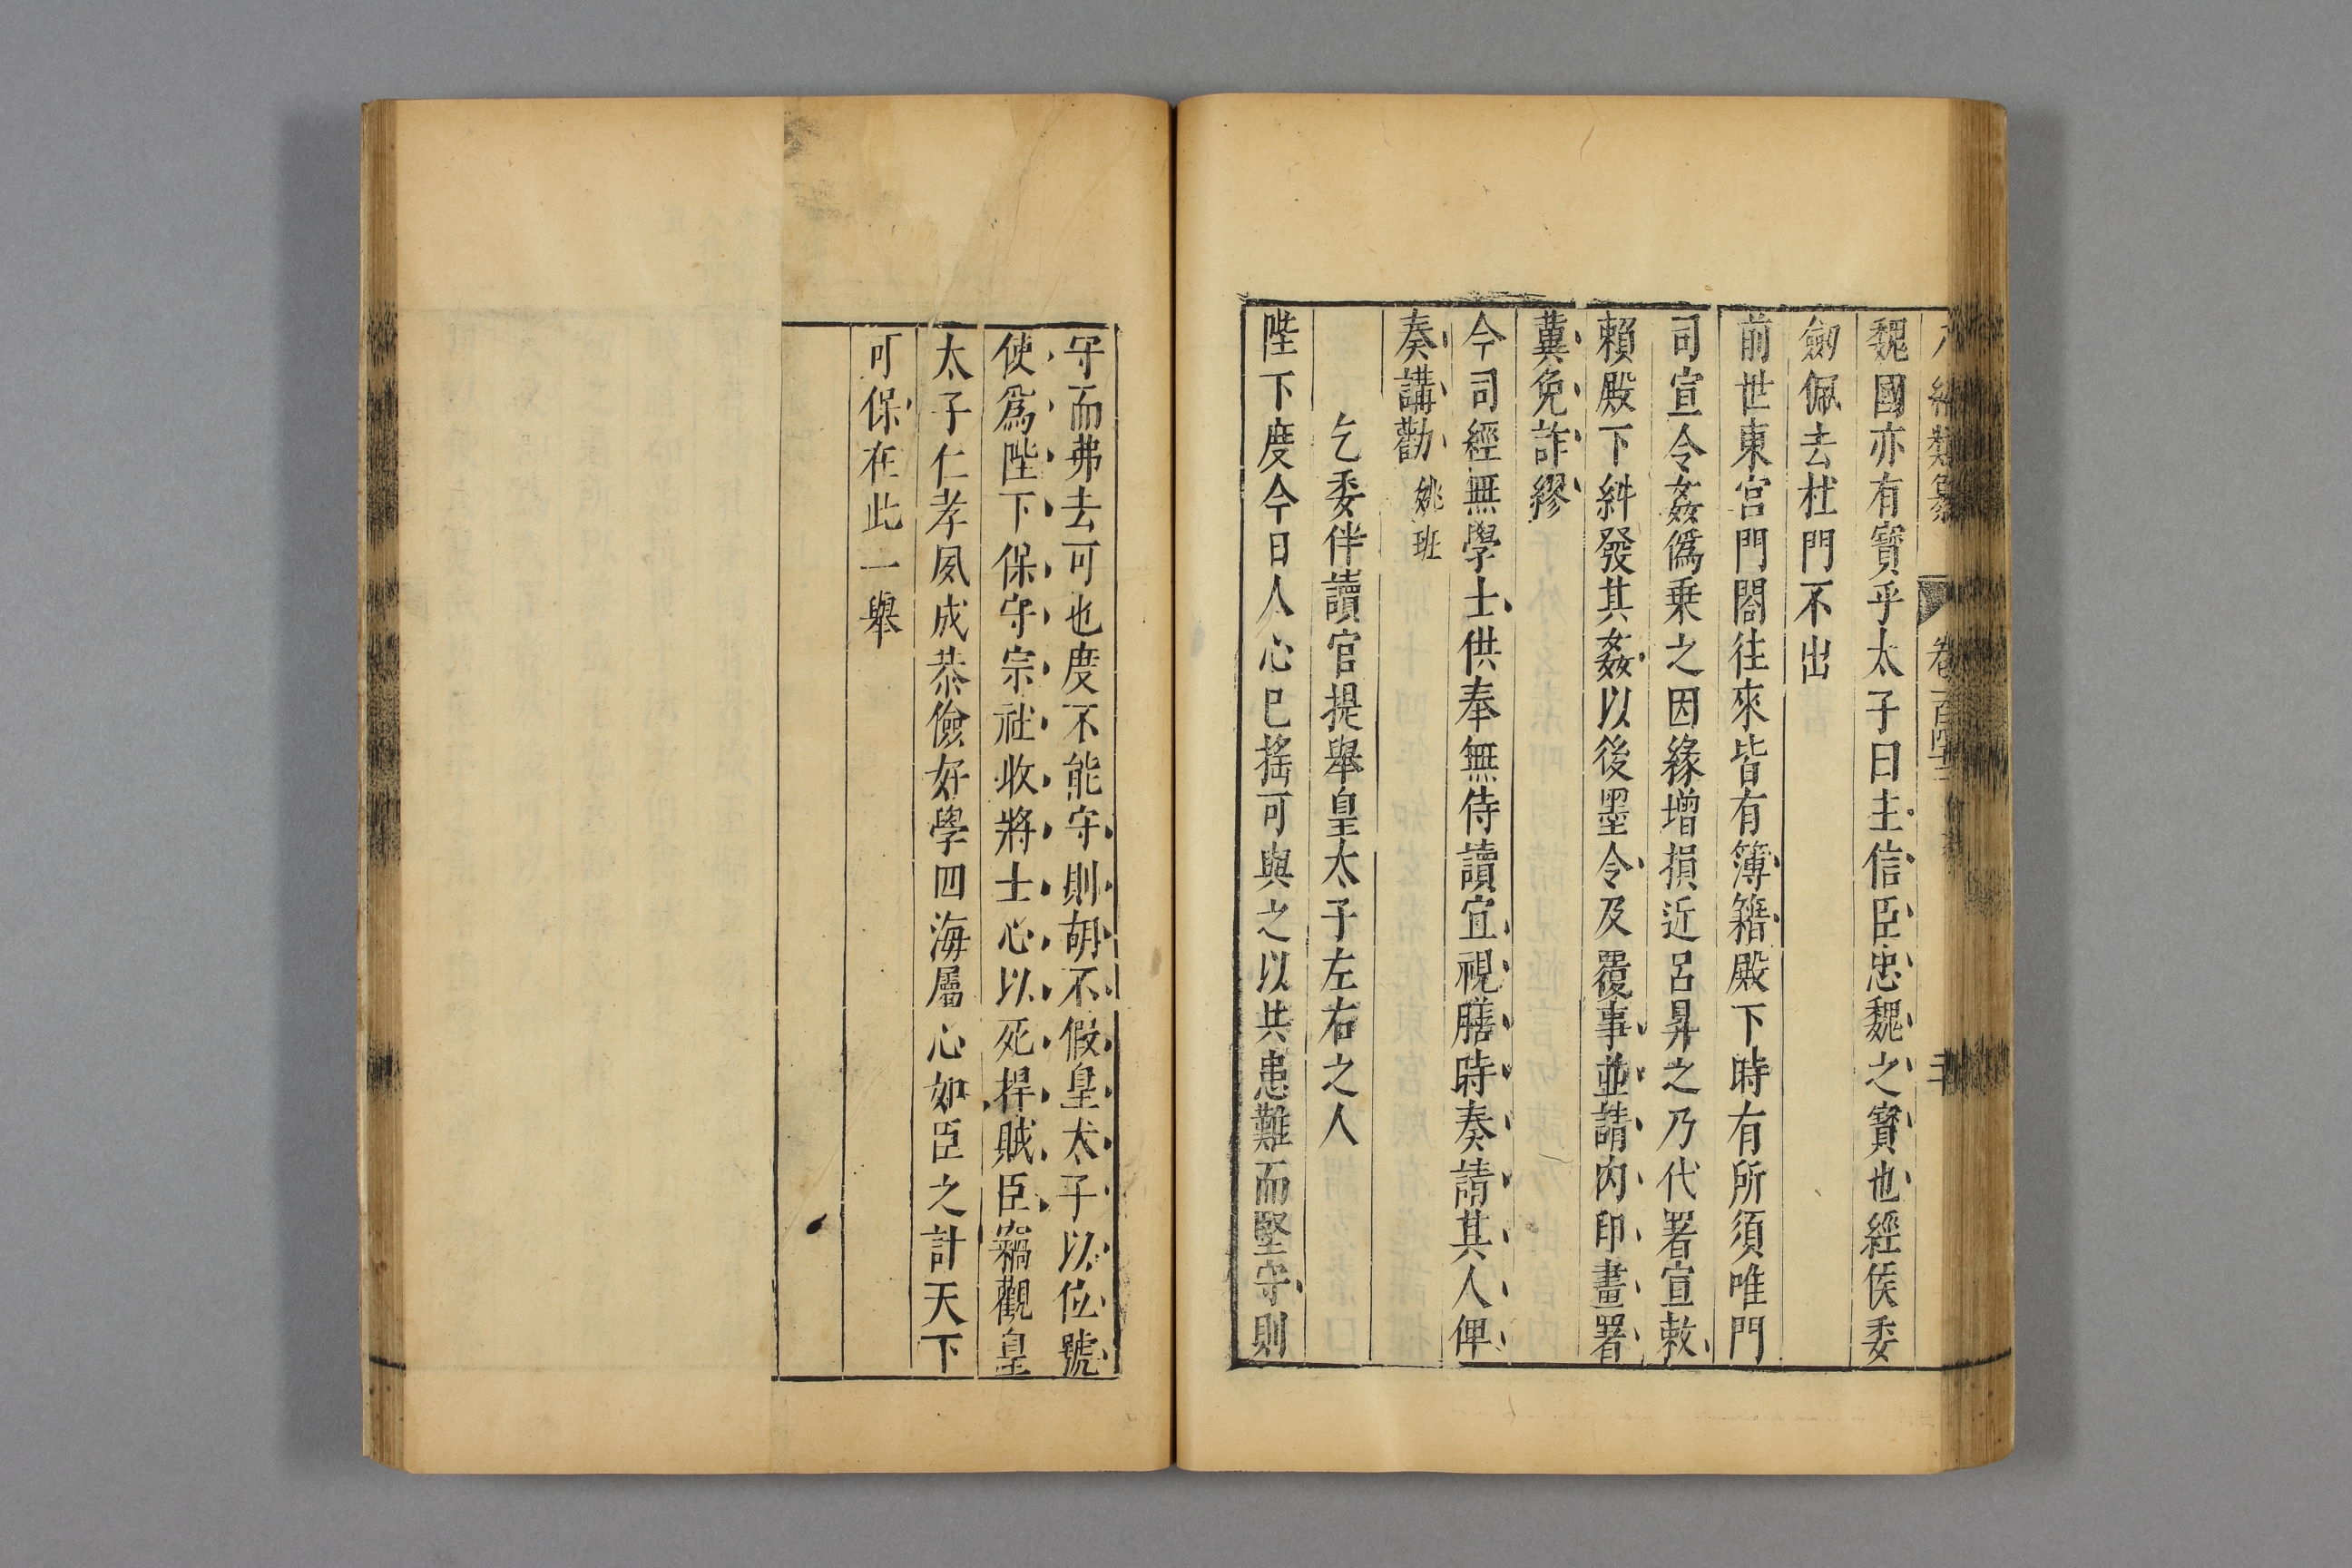 編類纂 卷百四十二
魏國亦有寳乎太子曰主信臣忠魏之寳也經侯委
劒佩去杜門不出
前世東宮門閤往來皆有簿籍殿下時有所須唯門
司宣令姦僞乗之因緣增損近呂昇之乃代署宣敕
賴殿下糾發其姦以後墨令及覆事並請内印畫署
冀免詐繆
今司經無學士供奉無侍讀宜視膳時奏請其人俾
奏講勸 姚班
乞委伴讀官提舉皇太子左右之人
陛下度今日人心已揺可與之以共患難而堅守則
守而弗去可也度不能守則胡不假皇太子以位號
使爲陛下保守宗社收將士心以死捍賊臣竊觀皇
太子仁孝夙成恭儉好學四海屬心如臣之計天下
可保在此一舉